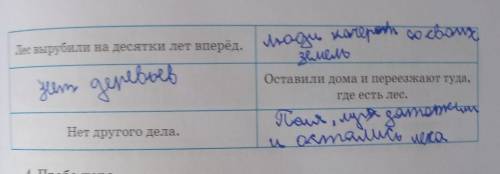 Лес вырубили на десятки лет вперёд.
люди со своих
земель
нет деревьев
Оставили дома и переезжают туда,
где есть лес.
Нет другого дела.
Поля, луга
и остались